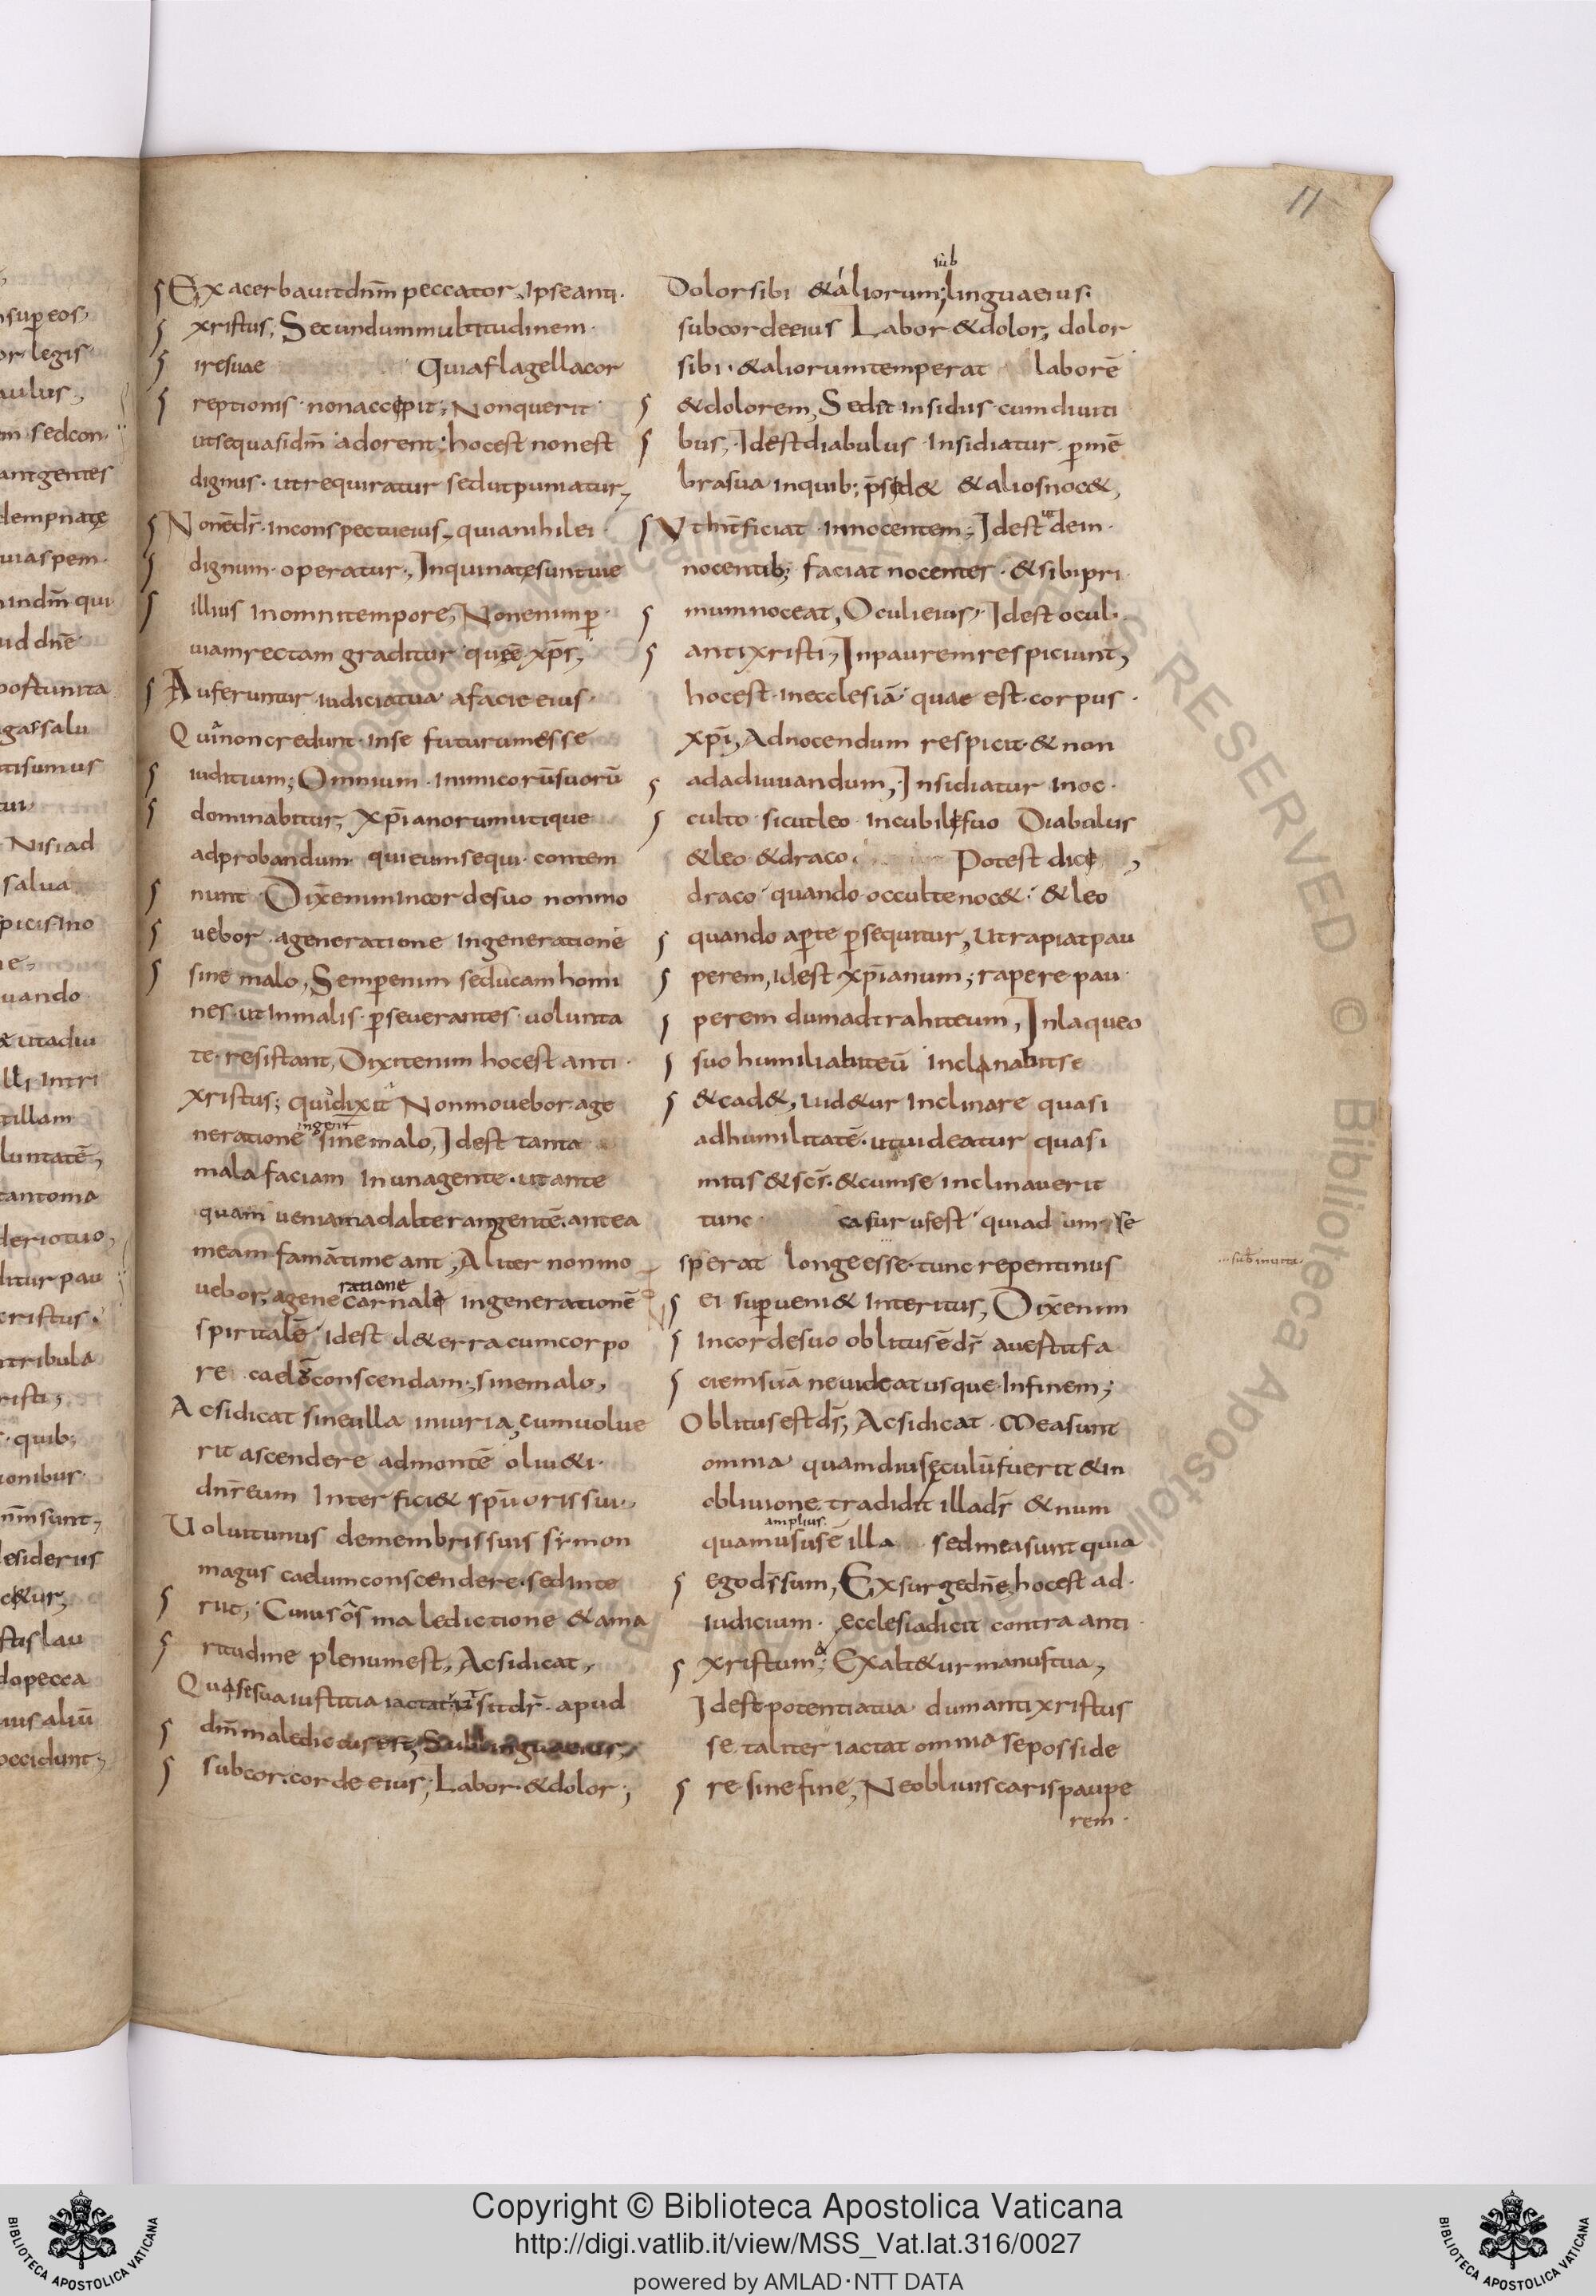 11
Exacerbauit dnm̄ peccator, Ipse anti·
xristus; Secundum multitudinem·
ire suae Quia flagella cor
reptionis· non accepit; Non querit·
ut sequasi dm̄ adorent; hoc est non est
dignus· ut requiratur sed ut puniatur,
Non ē ds̄· in conspectu eius, quia nihil ei·
dignum· operatur·, Inquinatę sunt uie
illius In omni tempore, Non enim ꝑ·
uiam rectam graditur quę ē xp̄s,
Auferuntur iudicia tua a facie eius·
Quia non credunt· in se futurum esse
iuditium; Omnium· inimicorū suorū
dominabitur, xp̄ianorum utique
ad probandum· qui eum sequi· contem
nunt· Dix̄ enim in corde suo non mo
uebor· a generatione In generatione
sine malo, Semꝑ enim seducam homi
nes· ut In malis· ꝑseuerantes· uolunta
te· resistant, Dixit enim hoc est anti·
xristus; qui dixit Non mouebor a ge
neratione in geñr sine malo, Id est tanta
mala faciam In una gente· ut ante
quam ueniam ad alteram gentē· antea
meam famā timeant, Aliter non mo
uebor, a generatione carnale In generationē
spiritalē Id est de terra cum corpo
re· caelo conscendam; sine malo,
Acsi dicat sine ulla iniuria, cum uolue
rit ascendere ad montē oliueti·
dn̄s eum Interficiet spū oris sui·,
Voluit unus de membris suis simon
magus caelum conscendere· sed Inte
riit, Cuius os maledictione & ama
ritudine plenum est, Acsi dicat,
Qua se sua iustitia iactat sit ds̄· apud
dm̄ maledictus est, Sub lingua eius,
sub cor· corde eius; Labor· & dolor;
Dolor sibi & aliorum; sub lingua eius·
sub corde eius Labor & dolor, dolor
sibi· & aliorum temperat laborē
& dolorem, Sedit insidiis cum diuiti
bus, Id est diabulus· Insidiatur ꝑ mē
bra sua in quib; & alios noc&,
Ut Int̄ficiat Innocentem; Id est ut de in·
nocentib; faciat nocentes· & sibi pri·
mum noceat, Oculi eius, Id est ocul·
antixristi, In pauꝑem respiciunt,
hoc est· in ecclesiā quae est· corpus·
xp̄i, Ad nocendum respicit· & non
ad adiuuandum, Insidiatur in oc·
culto· sicut leo· in cubilę suo Diabulus
& leo & draco· Potest dici,
draco quando occulte noc& & leo
quando aꝑte ꝑsequitur, Ut rapiat pau
perem, id est xp̄ianum; rapere pau·
perem dum adtrahit eum, In laqueo
suo humiliabit eū Inclinabit se
& cad&, uid&ur Inclinare quasi
ad humilitatē· ut uideatur quasi
mitis & scs̄· & cum se inclinauerit
tunc casurus est quia dum se
sperat longe esse· tunc repentinus
ei suꝑueni& Interitus, Dix̄ enim
In corde suo oblitus ē ds̄ auertit fa
ciem suā ne uideat usque· In finem;
Oblitus est ds̄, Acsi dicat· Mea sunt
omnia quamdiu sęculū fuerit & in
obliuione· tradidit illa ds̄ & num
quam amplius usus ē illa sed mea sunt quia
ego ds̄ sum, Exsurge dn̄e, hoc est ad·
Iudicium· ecclesia dicit contra anti·
xristum; & Exalt&ur manus tua,
Id est potentia tua dum antixristus
se· taliter iactat omnia se posside
re· sine fine, Ne obliuiscaris paupe
rem·
Copyright © Biblioteca Apostolica Vaticana
http://digi.vatlib.it/view/MSS_Vat.lat.316/0027
powered by AMLAD·NTT DATA
BIBLIOTECA APOSTOLICA VATICANA
BIBLIOTECA APOSTOLICA VATICANA